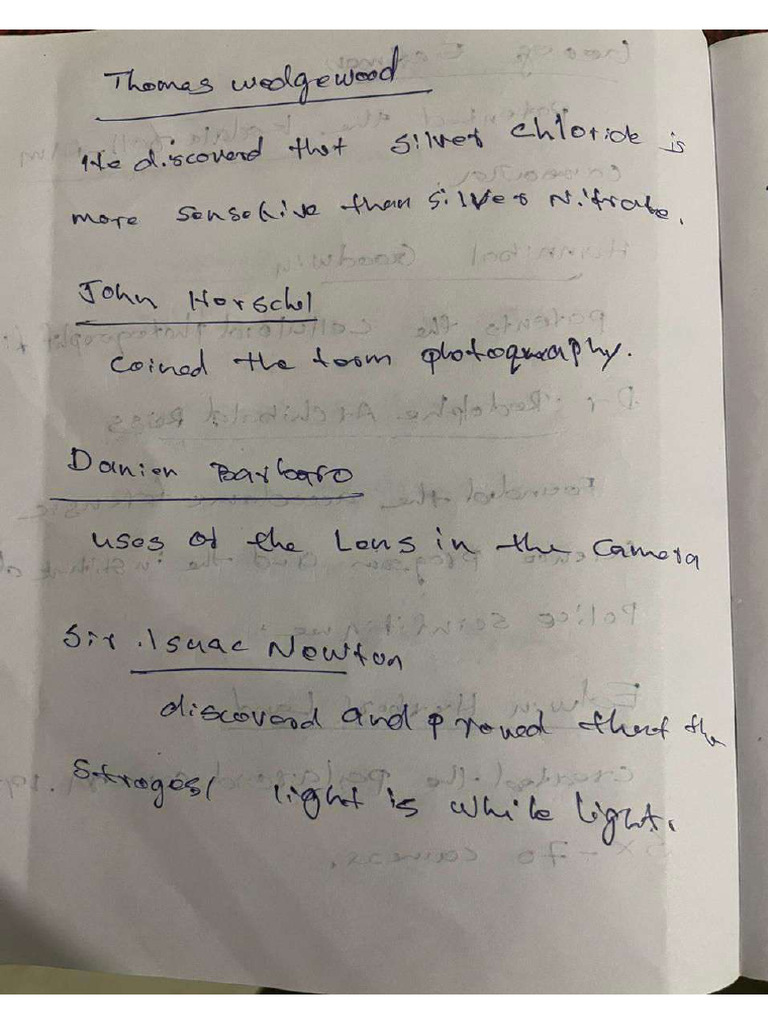 Thomas wedgewood
He discoverd that silver chloride is
more sensetive than silver Nitrate.
John Herschel
coined the term photography.
Danien Barbaro
uses of the Lens in the camera
Sir .Isaac Newton
discoverd and proved that the
Strogest light is while light.